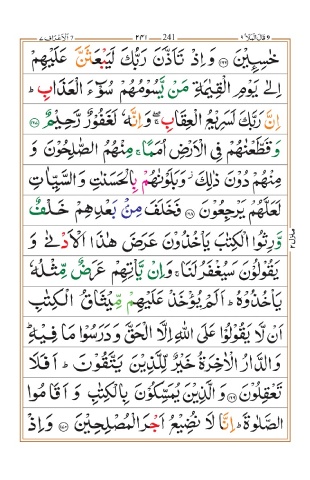 قال الملا ٩ 241 ٢٤١ الاعراف ٧
خٰسِـِٕيۡنَ ﴿۱۶۶﴾ وَاِذۡ تَاَذَّنَ رَبُّكَ لَيَبۡعَثَنَّ عَلَيۡهِمۡ
اِلٰى يَوۡمِ الۡقِيٰمَةِ مَنۡ يَّسُوۡمُهُمۡ سُوۡٓءَ الۡعَذَابِ‌ ؕ
اِنَّ رَبَّكَ لَسَرِيۡعُ الۡعِقَابِ ‌ۖۚ وَاِنَّهٗ لَـغَفُوۡرٌ رَّحِيۡمٌ ﴿۱۶۷﴾
وَقَطَّعۡنٰهُمۡ فِى الۡاَرۡضِ اُمَمًا‌ ۚ مِنۡهُمُ الصّٰلِحُوۡنَ وَ
مِنۡهُمۡ دُوۡنَ ذٰ لِكَ‌ وَبَلَوۡنٰهُمۡ بِالۡحَسَنٰتِ وَالسَّيِّاٰتِ
لَعَلَّهُمۡ يَرۡجِعُوۡنَ ﴿۱۶۸﴾ فَخَلَفَ مِنۡۢ بَعۡدِهِمۡ خَلۡفٌ
وَّرِثُوا الۡكِتٰبَ يَاۡخُذُوۡنَ عَرَضَ هٰذَا الۡاَدۡنٰى وَ
يَقُوۡلُوۡنَ سَيُغۡفَرُ لَـنَا‌ ۚ وَاِنۡ يَّاۡتِهِمۡ عَرَضٌ مِّثۡلُهٗ
يَاۡخُذُوۡهُ‌ ؕ اَلَمۡ يُؤۡخَذۡ عَلَيۡهِمۡ مِّيۡثَاقُ الۡـكِتٰبِ
اَنۡ لَّا يَقُوۡلُوۡا عَلَى اللّٰهِ اِلَّا الۡحَـقَّ وَدَرَسُوۡا مَا فِيۡهِ‌ ؕ
وَالدَّارُ الۡاٰخِرَةُ خَيۡرٌ لِّـلَّذِيۡنَ يَتَّقُوۡنَ‌ ؕ اَفَلَا
تَعۡقِلُوۡنَ ﴿۱۶۹﴾ وَالَّذِيۡنَ يُمَسِّكُوۡنَ بِالۡـكِتٰبِ وَاَقَامُوا
الصَّلٰوةَ ؕ اِنَّا لَا نُضِيۡعُ اَجۡرَ الۡمُصۡلِحِيۡنَ ﴿۱۷۰﴾ وَاِذۡ